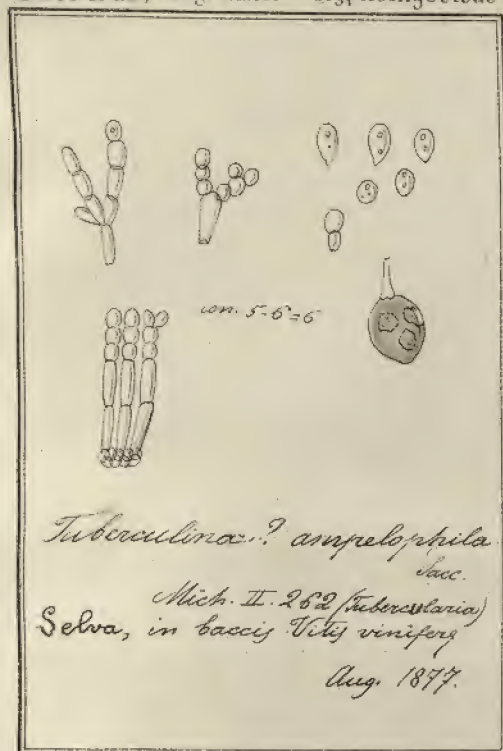 con. 5-6=6
Tuberculina..? ampelophila
Sacc.
Mich. II. 262 (Tubercularia)
Selva, in baccis Vitis viniferę
Aug. 1877.